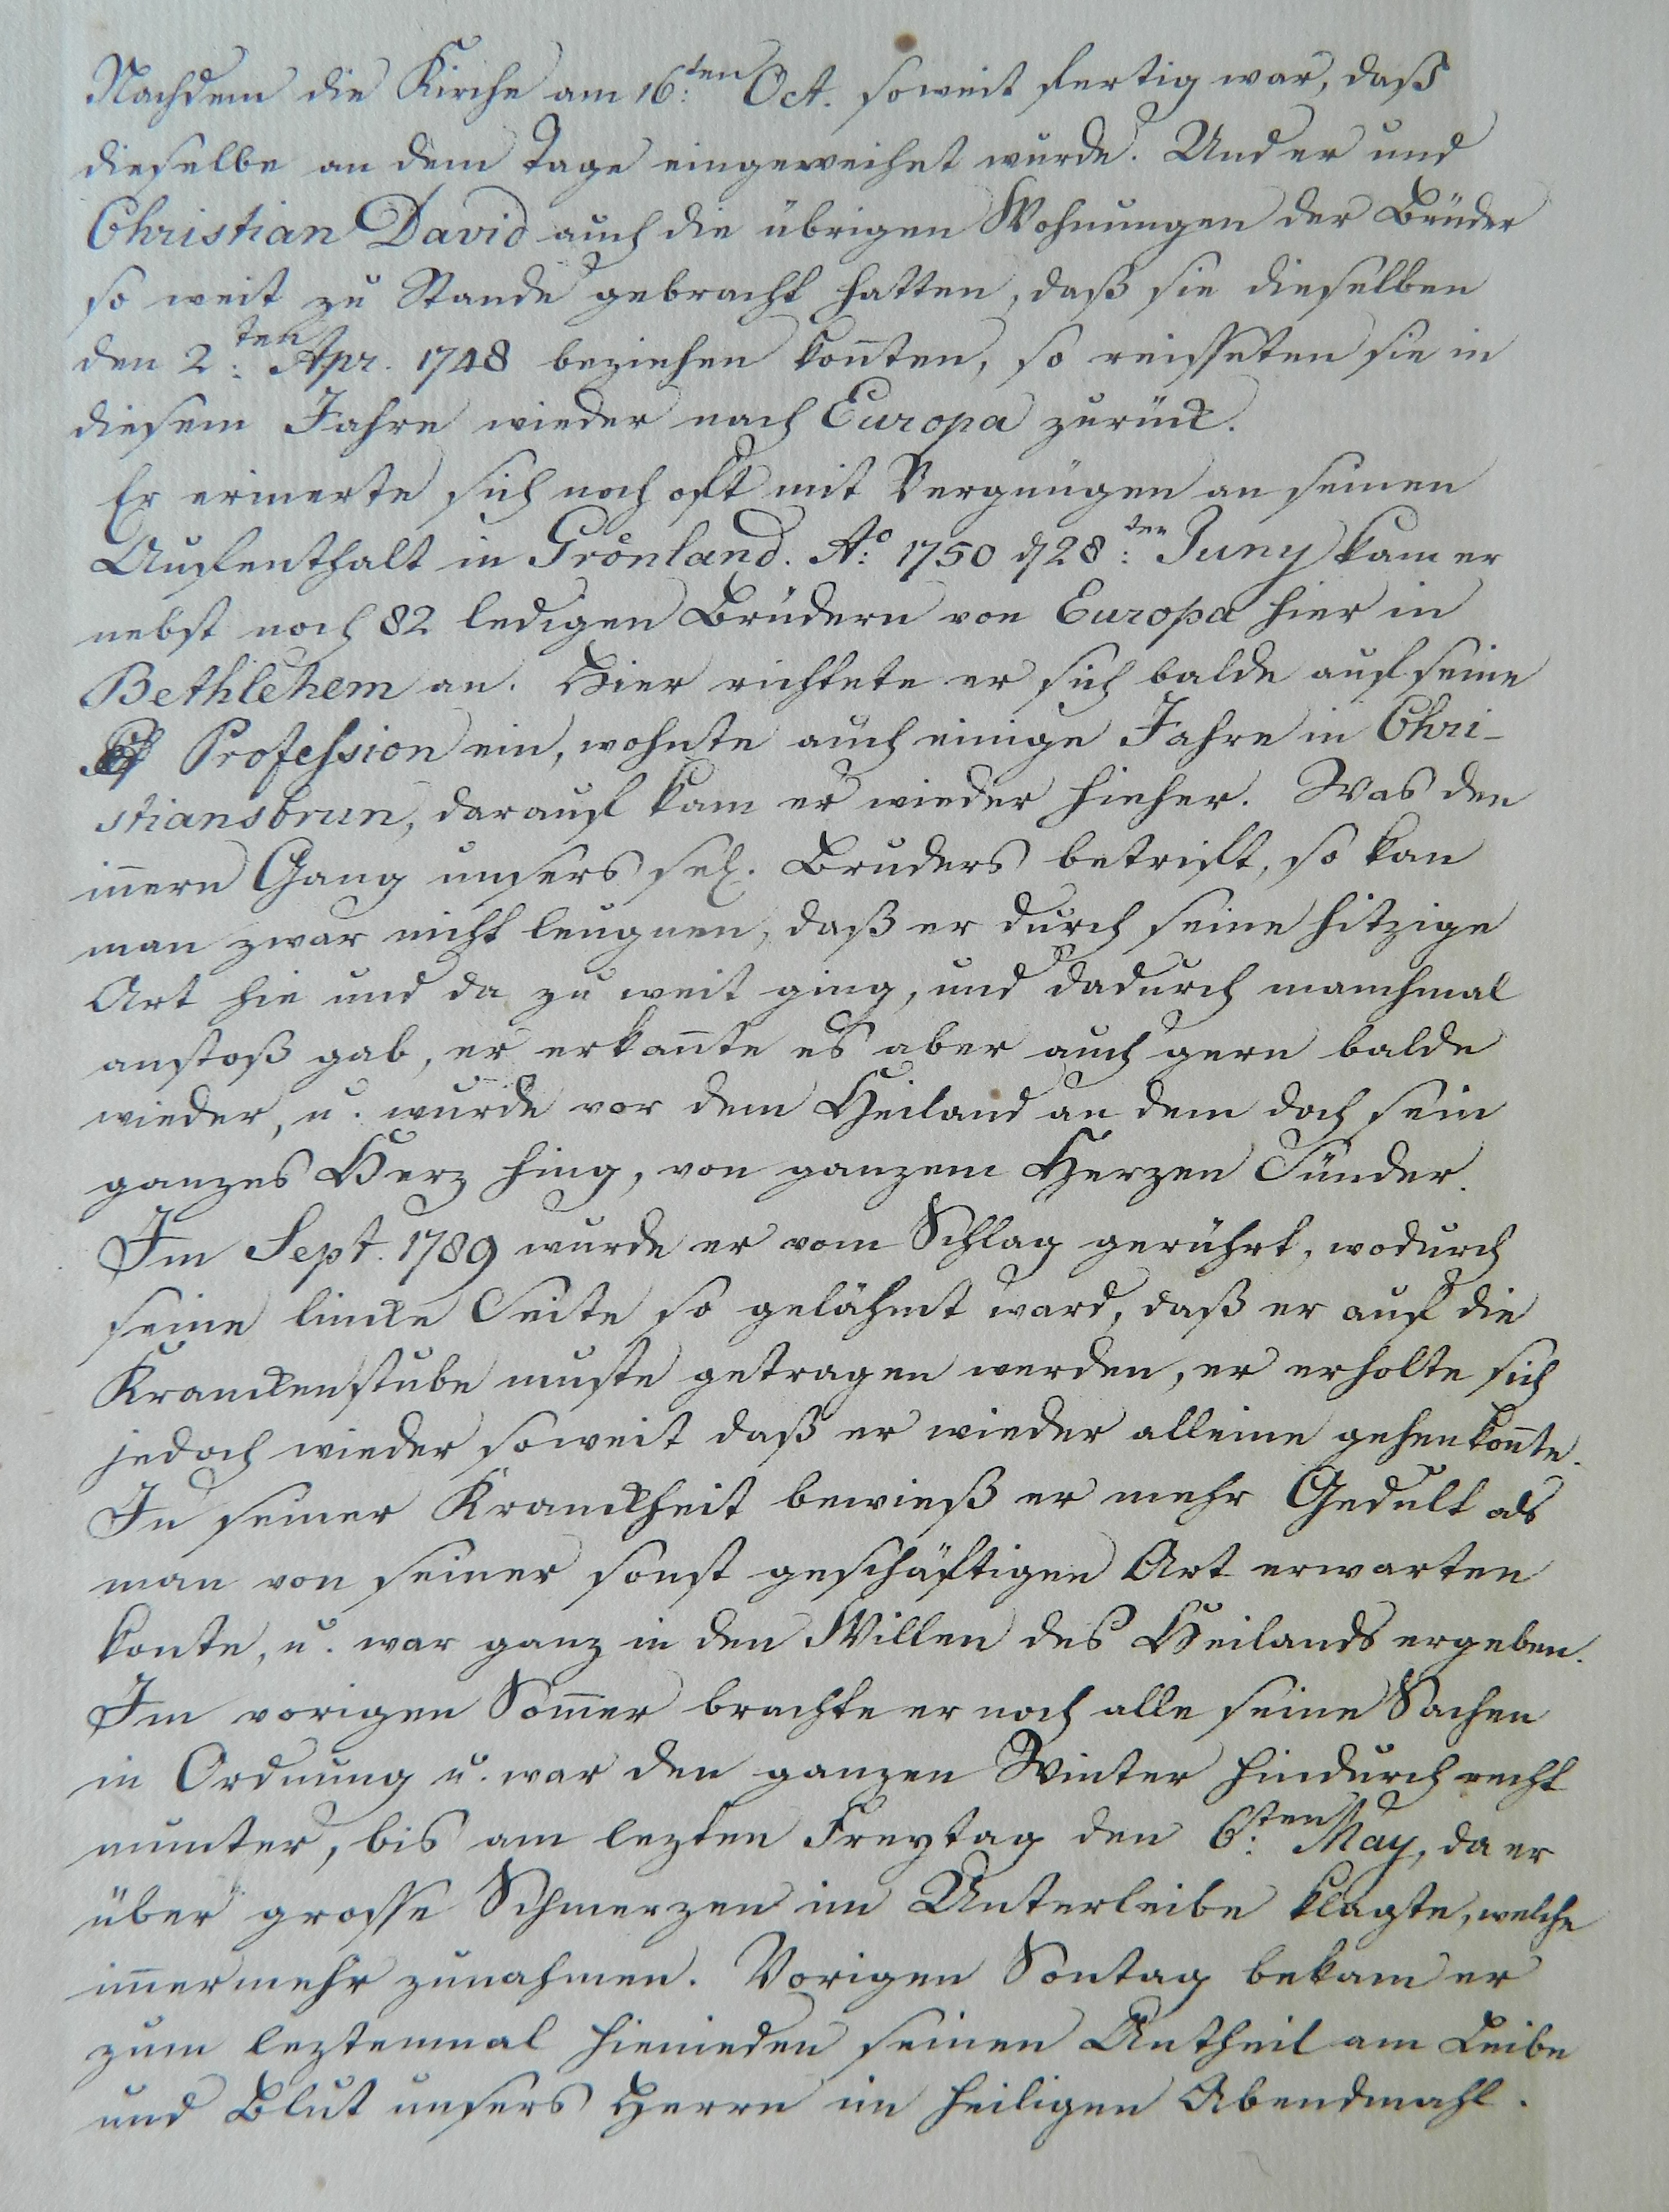 Nachdem die Kirche am 16:ten Oct. soweit fertig war, daß
dieselbe an dem Tage eingeweihet wurde. Und er und
Christian David auch die übrigen Wohnungen der Brüder
so weit zu Stande gebracht hatten, daß sie dieselben
den 2:ten Apr. 1748 beziehen kon̄ten, so reisseten sie in
diesem Jahre wieder nach Europa zurück.
Er erinerte sich noch oft mit Vergnügen an seinen
Aufenthalt in Grönland. Ao: 1750 d 28:ten Juny kam er
nebst noch 82 ledigen Brüdern von Europa hier in
Bethlehem an. Hier richtete er sich balde auf seine
Profession ein, wohnte auch einige Jahre in Chri-
stiansbrun, darauf kam er wieder hieher. Was den
in̄ern Gang unsers sel. Bruders betrift, so kan
man zwar nicht leugnen, daß er durch seine hitzige
Art hie und da zu weit ging, und dadurch manchmal
anstoß gab, er erkan̄te es aber auch gern balde
wieder, u. wurde vor dem Heiland an dem doch sein
ganzes Herz hing, von ganzem Herzen Sünder.
Im Sept. 1789 wurde er vom Schlag gerührt, wodurch
seine lincke Seite so gelähmt ward, daß er auf die
Kranckenstube muste getragen werden, er erholte sich
jedoch wieder soweit daß er wieder alleine gehen kon̄te.
In seiner Kranckheit bewieß er mehr Gedult als
man von seiner sonst geschäftigen Art erwarten
konte, u. war ganz in den Willen des Heilands ergeben.
Im vorigen Som̄er brachte er noch alle seine Sachen
in Ordnung u. war den ganzen Winter hindurch recht
munter, bis am lezten Freytag den 6:sten May, da er
über grosse Schmerzen im Unterleibe klagte, welche
im̄ermehr zunahmen. Vorigen Sontag bekam er
zum leztenmal hienieden seinen Antheil am Leibe
und Blut unsers Herrn im heiligen Abendmahl.